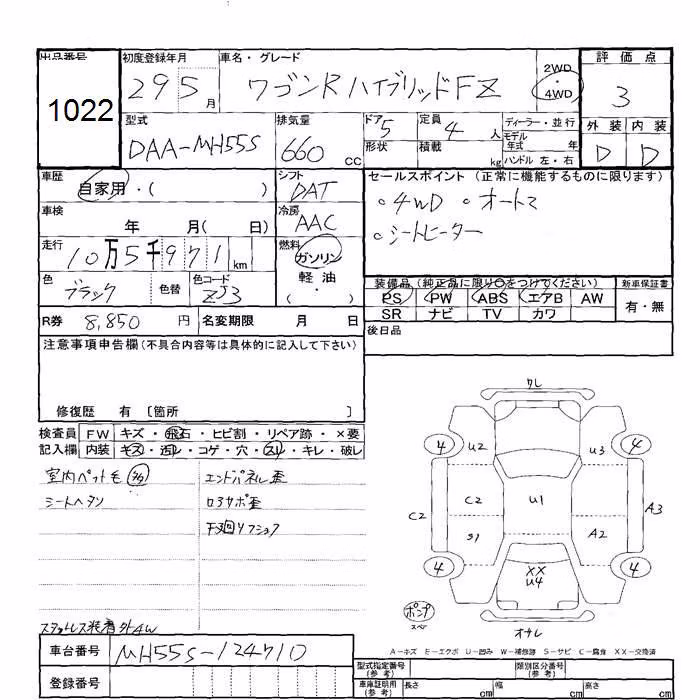 出品番号 初度登録年月 車名・グレード 2WD 評価点
1022 29 5月 ワゴンRハイブリッドFZ ・4WD 3
型式 排気量 ドア 5 定員 4人 ディーラー・並行 外装 内装
DAA-MH55S 660cc 形状 積載 kg モデル年式 年 D D
ハンドル 左・右
車歴 自家用・( ) シフト DAT セールスポイント (正常に機能するものに限ります)
車検 年 月( 日) 冷房 AAC ・4WD ・オートマ
走行 10万5千971km 燃料 ガソリン ・シートヒーター
色 ブラック 色替 色コード ZJ3 軽油 ・( )
装備品 (純正品に限り○をつけてください) 新車保証書
PS PW ABS エアB AW 有・無
SR ナビ TV カワ
R券 8,850円 名変期限 月 日
後日品
注意事項申告欄(不具合内容等は具体的に記入して下さい)
修復歴 有 〔箇所 〕
検査員 FW キズ・飛石・ヒビ割・リペア跡・×要
記入欄 内装 キズ・汚レ・コゲ・穴・スレ・キレ・破レ
室内ペット毛 エンドパネル歪
シートヘタリ ロアサポ歪
下廻リフシュク
スタットレス装着 外4W
クレ
4 U2 U3 4
C2 C2 U1 A3
S1 A2
4 XX U4 4
ポンプ
スペア
オサレ
A-キズ E-エクボ U-凹み W-補修跡 S-サビ C-腐食 XX-交換済
車台番号 MH55S-124710
登録番号
型式指定番号(参考) 類別区分番号(参考)
車庫証明用(参考) 長さ cm 幅 cm 高さ cm